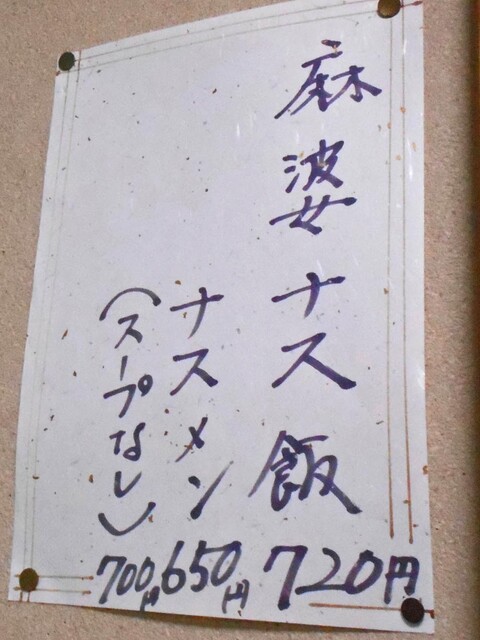 麻婆ナス飯 720円
ナスメン 650円
(スープなし) 700円